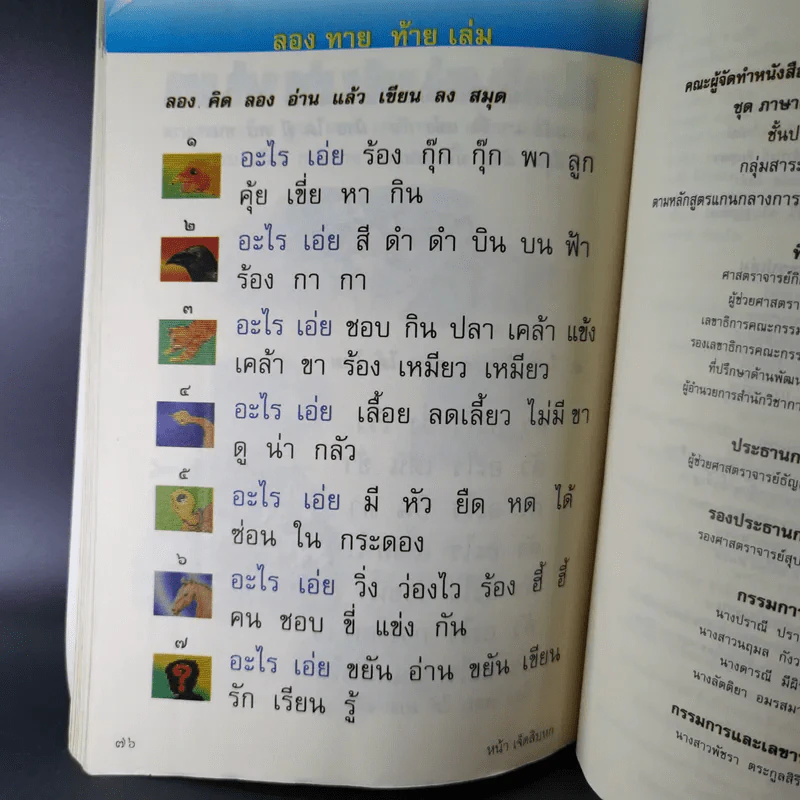 ลอง ทาย ท้าย เล่ม
ลอง คิด ลอง อ่าน แล้ว เขียน ลง สมุด
๑
อะไร เอ่ย ร้อง กุ๊ก กุ๊ก พา ลูก
คุ้ย เขี่ย หา กิน
๒
อะไร เอ่ย สี ดำ ดำ บิน บน ฟ้า
ร้อง กา กา
๓
อะไร เอ่ย ชอบ กิน ปลา เคล้า แข้ง
เคล้า ขา ร้อง เหมียว เหมียว
๔
อะไร เอ่ย เลื้อย ลดเลี้ยว ไม่มี ขา
ดู น่า กลัว
๕
อะไร เอ่ย มี หัว ยืด หด ได้
ซ่อน ใน กระดอง
๖
อะไร เอ่ย วิ่ง ว่องไว ร้อง ฮี้ ฮี้
คน ชอบ ขี่ แข่ง กัน
๗
อะไร เอ่ย ขยัน อ่าน ขยัน เขียน
รัก เรียน รู้
๗๖
หน้า เจ็ดสิบหก
คณะผู้จัดทำหนังสือ
ชุด ภาษา
ชั้นป
กลุ่มสาระ
ตามหลักสูตรแกนกลางการ
ที่
ศาสตราจารย์กิ
ผู้ช่วยศาสตรา
เลขาธิการคณะกรรม
รองเลขาธิการคณะกรร
ที่ปรึกษาด้านพัฒน
ผู้อำนวยการสำนักวิชากา
ประธานก
ผู้ช่วยศาสตราจารย์ธัญ
รองประธานก
รองศาสตราจารย์สุป
กรรมกา
นางปราณี ปรา
นางสาวนฤมล กังว
นางดารณี มีผิ
นางลัดดิยา อมรสมา
กรรมการและเลขา
นางสาวพัชรา ตระกูลสิริ